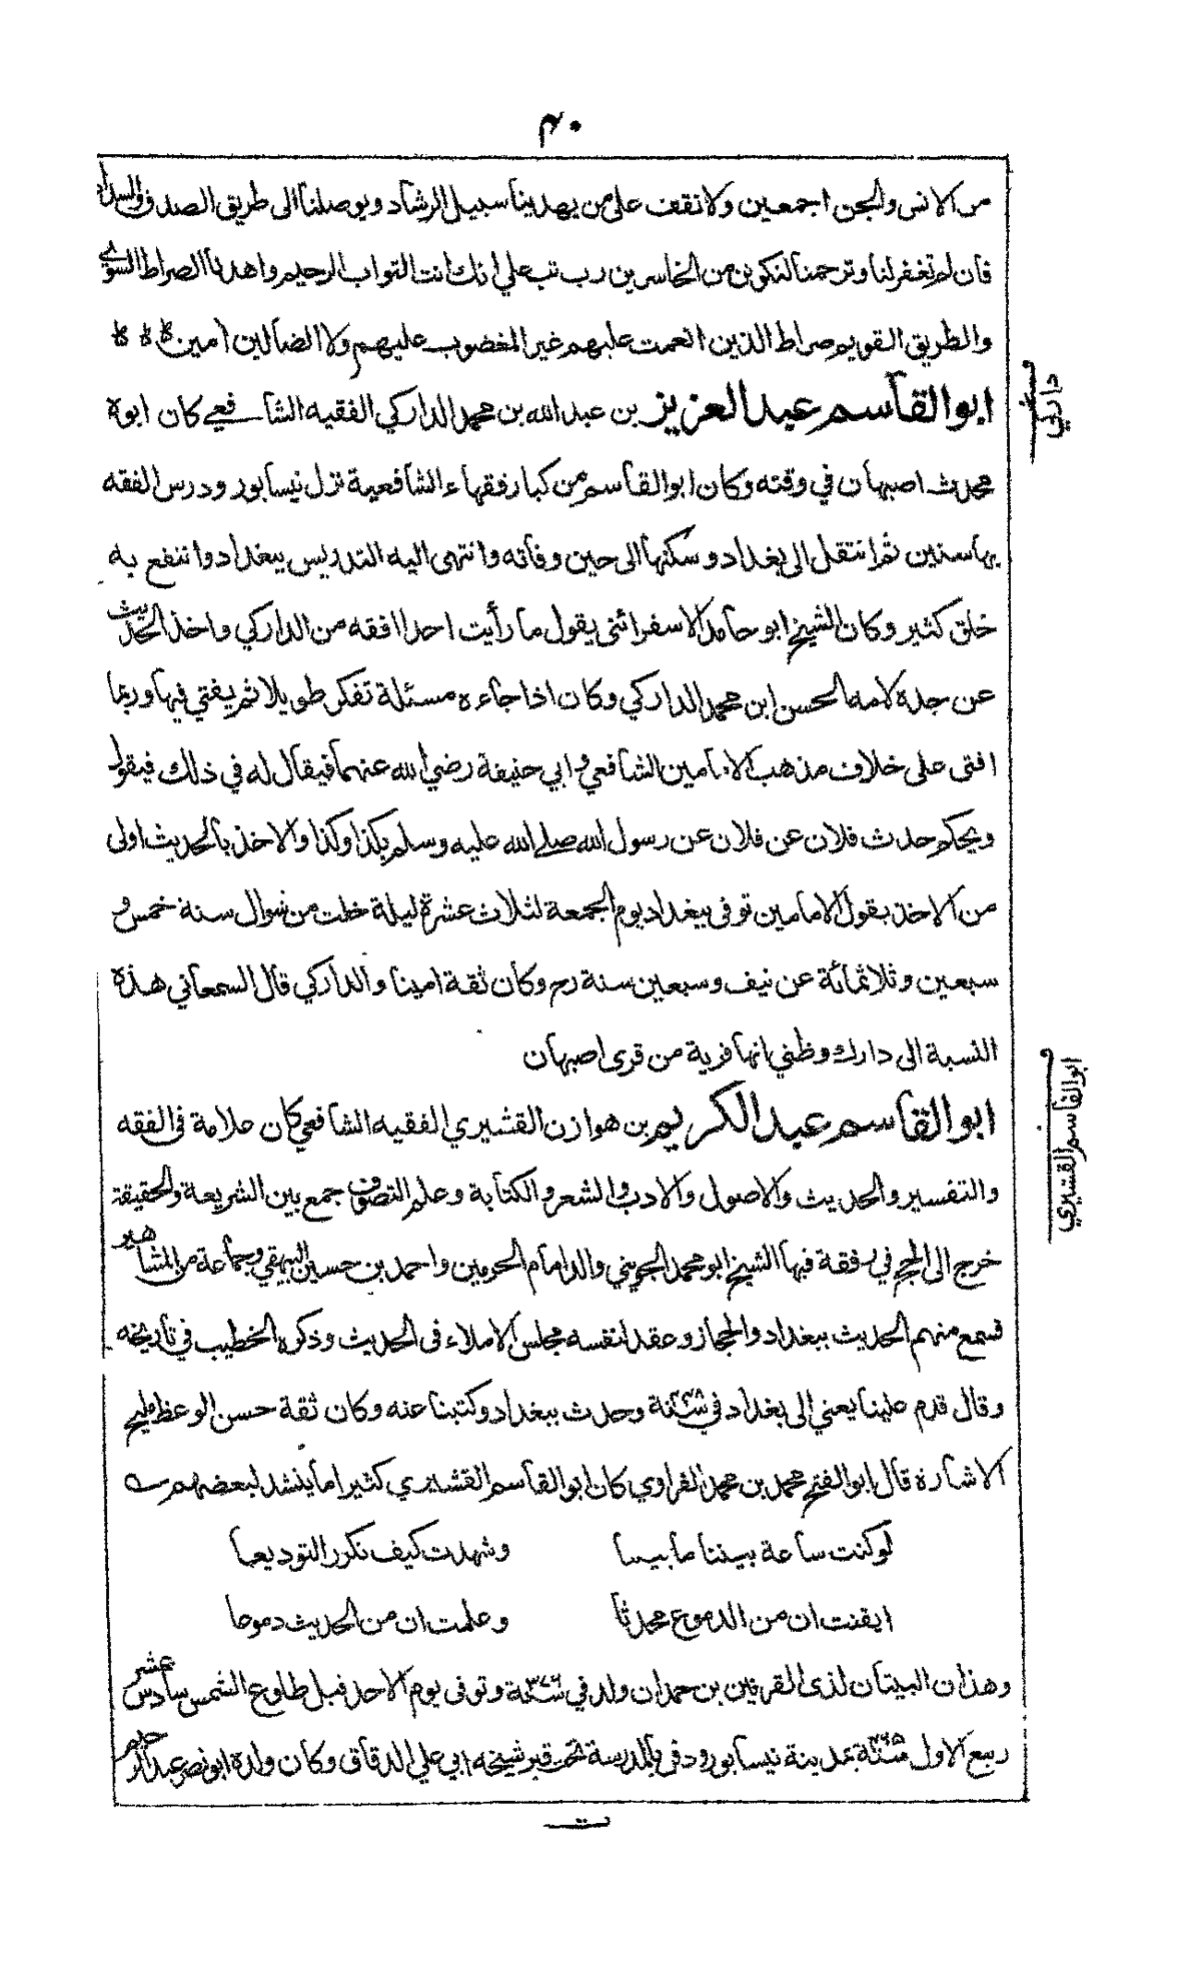 ۴۰
من الانس والجن اجمعين ولا نقف على من يهدينا سبيل الرشاد ويوصلنا الى طريق الصدق والسداد
فان لم تغفر لنا وترحمنا لنكونن من الخاسرين رب تب علي انك انت التواب الرحيم واهدنا الصراط السوي
والطريق القويم صراط الذين انعمت عليهم غير المغضوب عليهم ولا الضالين امين
ابو القاسم عبد العزيز بن عبد الله بن محمد الداركي الفقيه الشافعي كان ابوه
محدث اصبهان في وقته وكان ابو القاسم من كبار فقهاء الشافعية نزل نيسابور ودرس الفقه
بها سنين ثم انتقل الى بغداد وسكنها الى حين وفاته وانتهى اليه التدريس ببغداد وانتفع به
خلق كثير وكان الشيخ ابو حامد الاسفرائنى يقول ما رأيت احدا افقه من الداركي واخذ الحديث
عن جده لامه الحسن ابن محمد الداركي وكان اذا جاءه مسئلة تفكر طويلا ثم يفتي فيها وربما
افتى على خلاف مذهب الامامين الشافعي وابي حنيفة رضي الله عنهما فيقال له في ذلك فيقول
ويحكم حدث فلان عن فلان عن رسول الله صلى الله عليه وسلم بكذا وكذا والاخذ بالحديث اولى
من الاخذ بقول الامامين توفى ببغداد يوم الجمعة لثلاث عشرة ليلة خلت من شوال سنة خمس و
سبعين وثلاثمائة عن نيف وسبعين سنة رح وكان ثقة امينا والداركي قال السمعاني هذه
النسبة الى دارك وظني انها قرية من قرى اصبهان
ابو القاسم عبد الكريم بن هوازن القشيري الفقيه الشافعي كان علامة فى الفقه
والتفسير والحديث والاصول والادب والشعر والكتابة وعلم التصوف جمع بين الشريعة والحقيقة
خرج الى الحج في رفقة فيها الشيخ ابو محمد الجويني والد امام الحرمين واحمد بن حسين البيهقي وجماعة من المشاهير
فسمع منهم الحديث ببغداد والحجاز وعقد لنفسه مجلس الاملاء فى الحديث وذكره الخطيب في تاريخه
وقال قدم علينا يعني الى بغداد في سنة وحدث ببغداد وكتبنا عنه وكان ثقة حسن الوعظ مليح
الاشارة قال ابو الفتح محمد بن محمد الفراوي كان ابو القاسم القشيري كثيرا ما ينشد لبعضهم
لو كنت ساعة بيننا ما بيننا وشهدت كيف نكرر التوديعا
ايقنت ان من الدموع محدثا وعلمت ان من الحديث دموعا
وهذان البيتان لذى القرنين بن حمدان ولد في سنة وتوفى يوم الاحد قبل طلوع الشمس سادس عشر
ربيع الاول سنة بمدينة نيسابور ودفن بالمدرسة تحت قبر شيخه ابي علي الدقاق وكان ولده ابو نصر عبد الرحيم
داركي
ابو القاسم القشيري